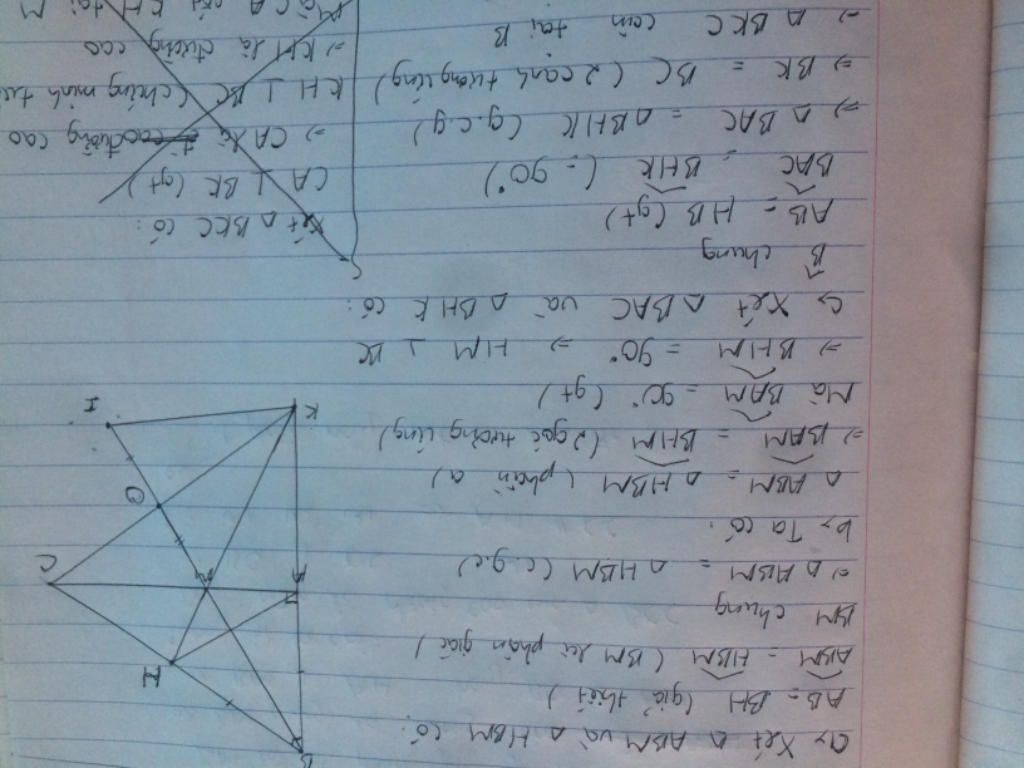 a, Xét Δ ABM và Δ HBM có:
AB = BH (giả thiết)
ABM = HBM (BM là phân giác)
BM chung
⇒ Δ ABM = Δ HBM (c.g.c)
b, Ta có:
Δ ABM = Δ HBM (phần a)
⇒ BAM = BHM (2 góc tương ứng)
Mà BAM = 90° (gt)
⇒ BHM = 90° ⇒ HM ⊥ BC
c, Xét Δ BAC và Δ BHK có:
B chung
AB = HB (gt)
BAC = BHK (= 90°)
⇒ Δ BAC = Δ BHK (g.c.g)
⇒ BK = BC (2 cạnh tương ứng)
⇒ Δ BKC cân tại B
B
H
A
M
C
Q
I
K
Xét Δ BKC có:
CA ⊥ BK (gt)
⇒ CA là đường cao
KH ⊥ BC (chứng minh
⇒ KH là đường cao
Mà CA cắt KH tại M